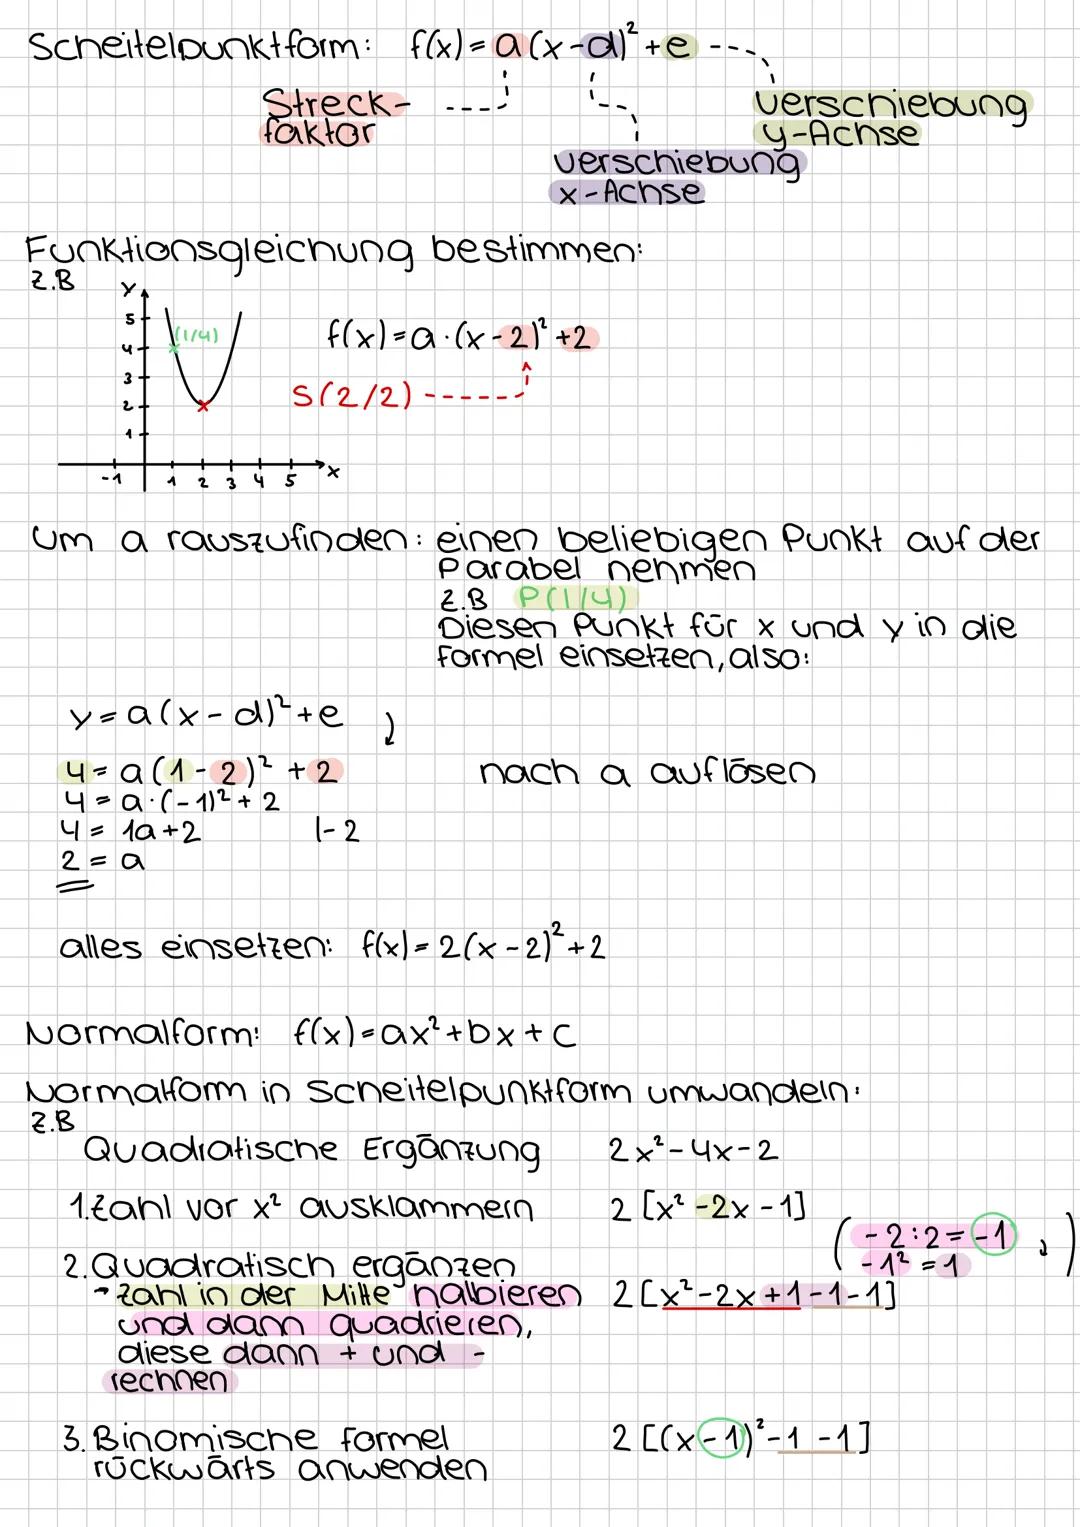 Scheitelpunktform: f(x)=a(x-d)²+e
Streck-
faktor
verschiebung
y-Achse
verschiebung
x-Achse
Funktionsgleichung bestimmen:
z.B
y
5
4
3
2
1
(1/4)
-1 1 2 3 4 5 x
f(x)=a·(x-2)²+2
S(2/2)
um a rauszufinden: einen beliebigen Punkt auf der
Parabel nehmen
z.B P(1/4)
Diesen Punkt für x und y in die
formel einsetzen, also:
y=a(x-d)²+e
4=a(1-2)²+2 nach a auflösen
4=a·(-1)²+2
4=1a+2 |-2
2=a
alles einsetzen: f(x)=2(x-2)²+2
Normalform: f(x)=ax²+bx+c
Normalform in Scheitelpunktform umwandeln:
z.B
Quadratische Ergänzung 2x²-4x-2
1.Zahl vor x² ausklammern 2[x²-2x-1]
(-2:2=-1
-1²=1)
2.Quadratisch ergänzen
→Zahl in der Mitte halbieren 2[x²-2x+1-1-1]
und dann quadrieren,
diese dann + und -
rechnen
3.Binomische formel 2[(x-1)²-1-1]
rückwärts anwenden